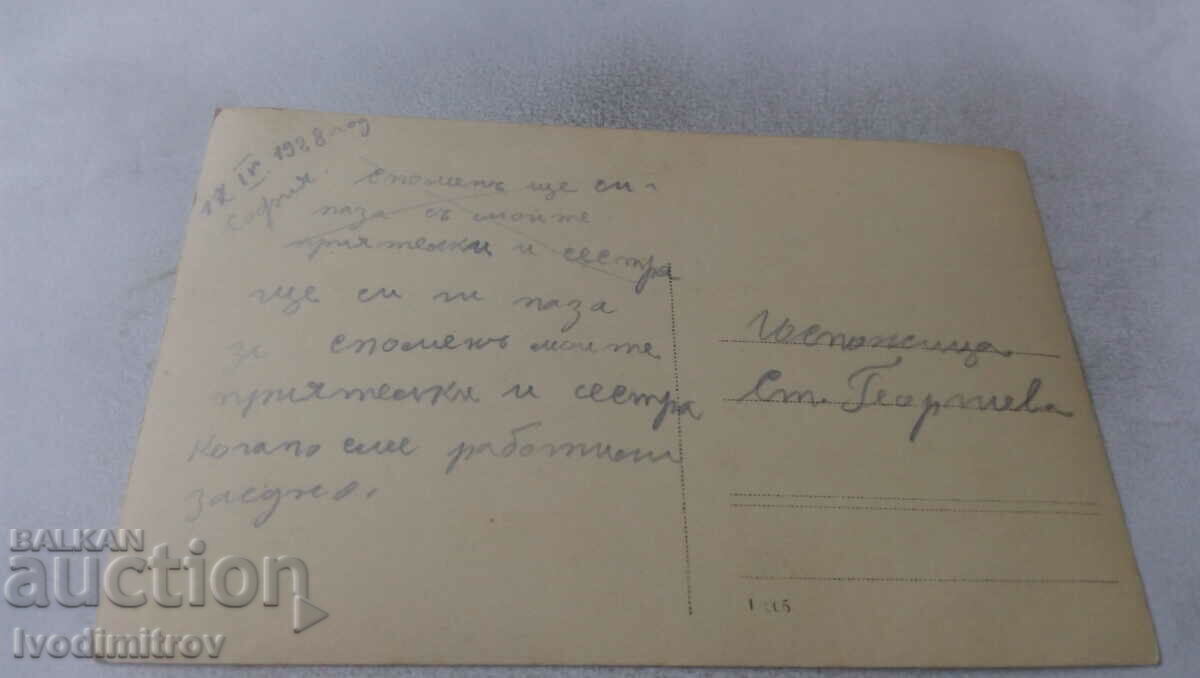 12 IV. 1928 год
София.
Споменъ ще си
паза съ мойте
приятелки и сестра
ще си ги паза
за споменъ моите
приятелки и сестра
Когато сме работили
заедно.
Госпожица
Ст. Георгиева
BALKAN
auction
Ivodimitrov